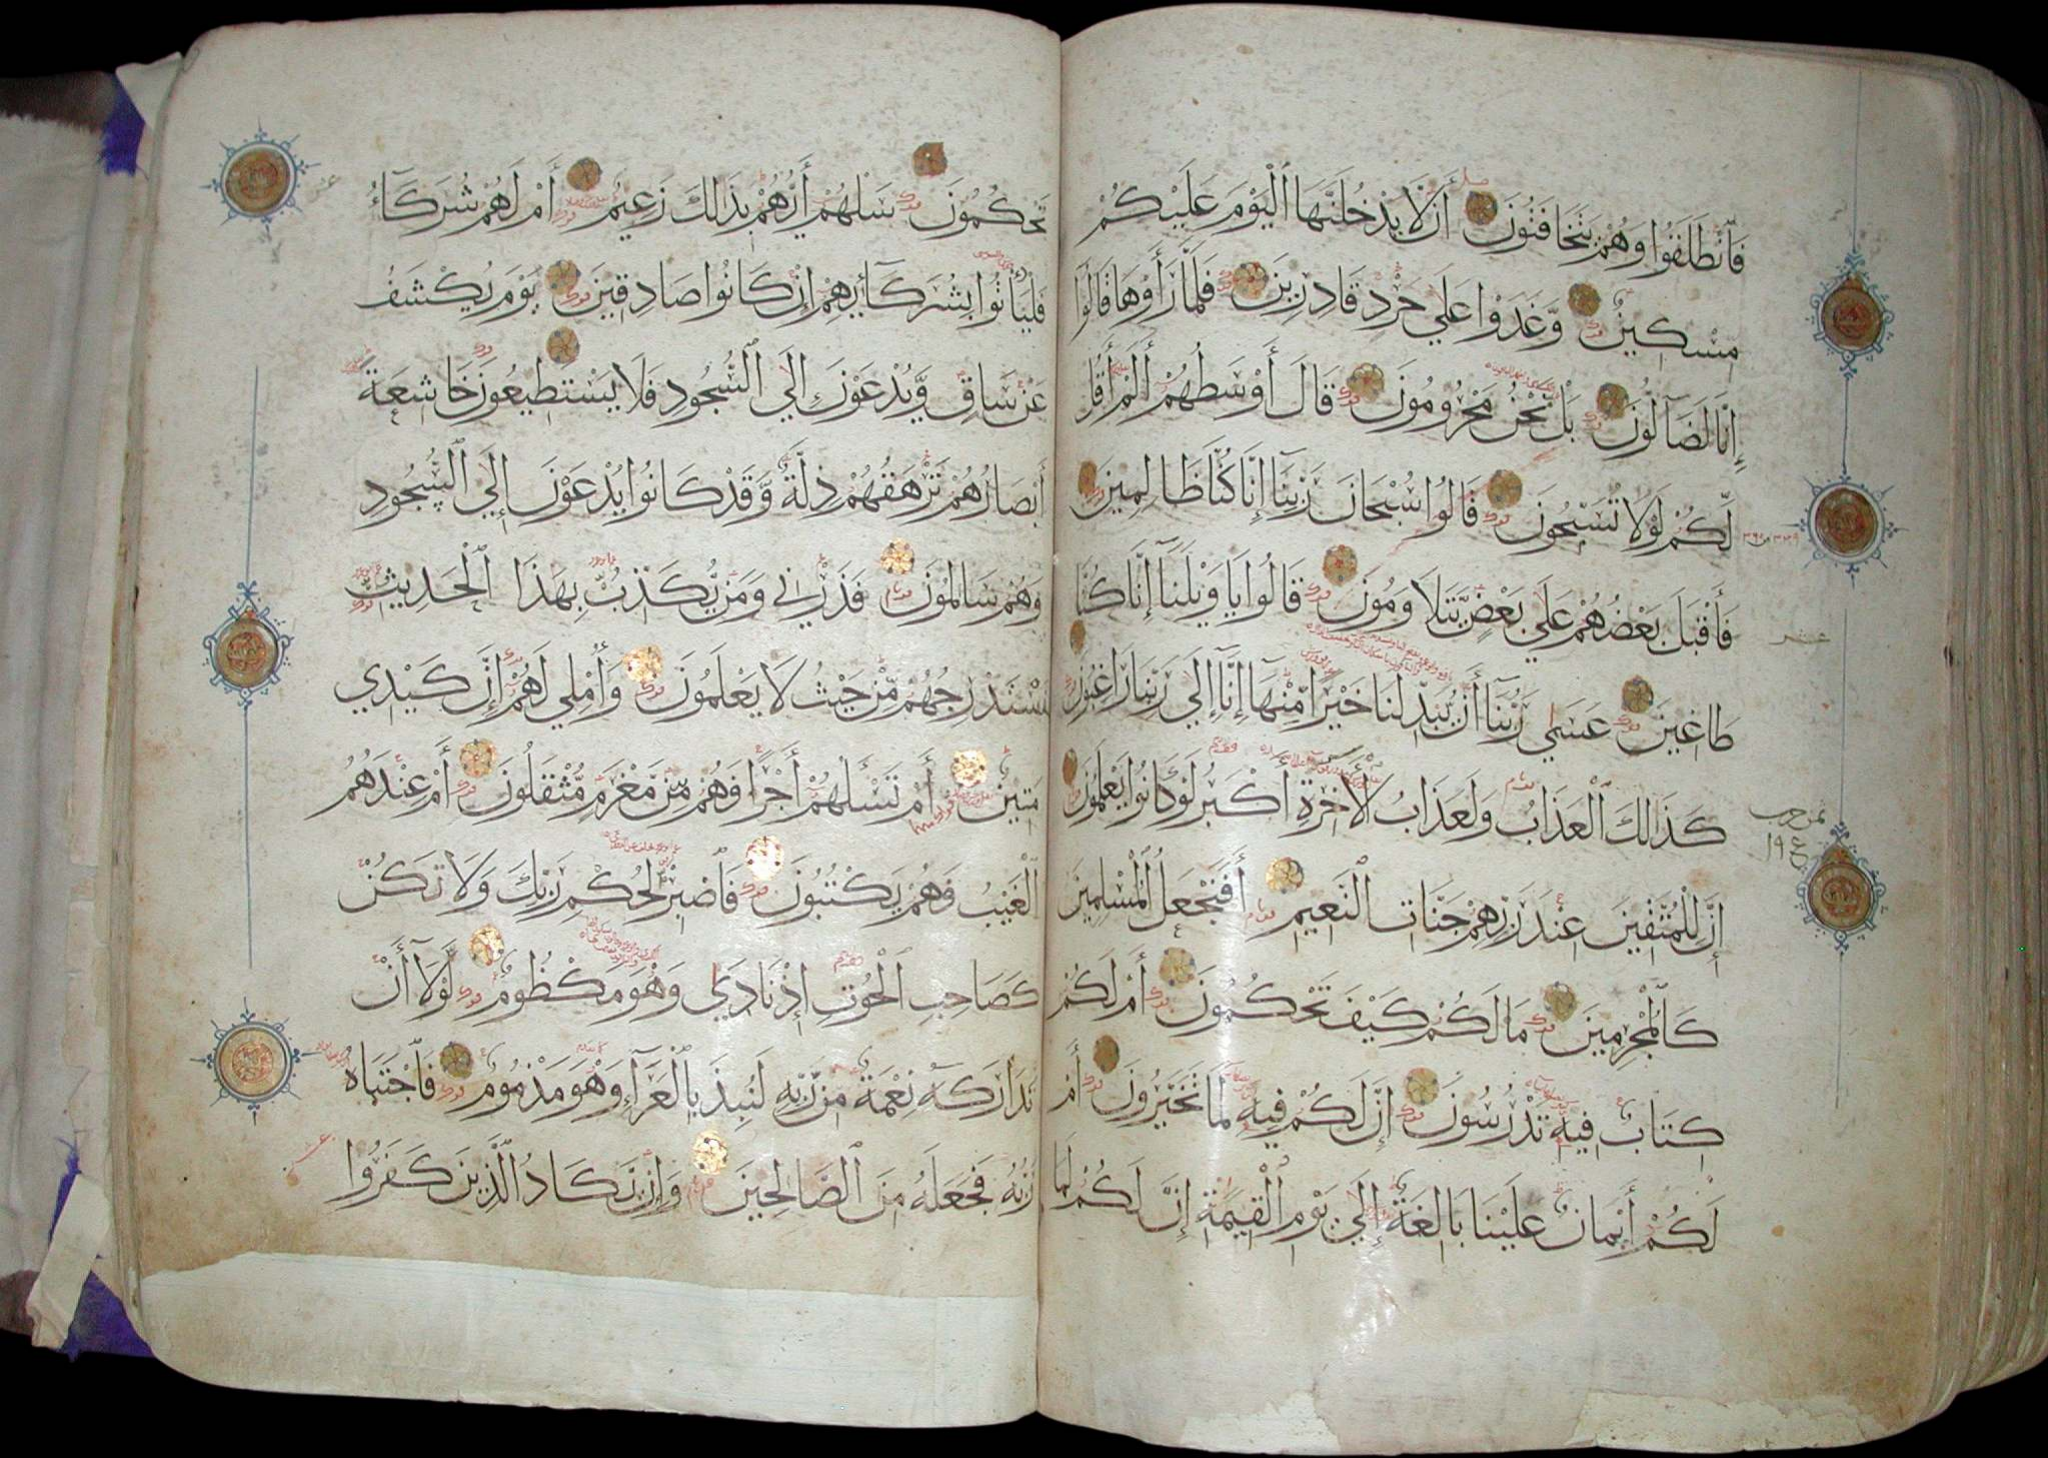 فَٱنطَلَقُوا وَهُمْ يَتَخَافَتُونَ أَن لَّا يَدْخُلَنَّهَا ٱلْيَوْمَ عَلَيْكُمْ
مِّسْكِينٌ وَّغَدَوْا عَلَى حَرْدٍ قَادِرِينَ فَلَمَّا رَأَوْهَا قَالُوا
إِنَّا لَضَآلُّونَ بَلْ نَحْنُ مَحْرُومُونَ قَالَ أَوْسَطُهُمْ أَلَمْ أَقُل
لَّكُمْ لَوْلَا تُسَبِّحُونَ قَالُوا سُبْحَانَ رَبِّنَآ إِنَّا كُنَّا ظَالِمِينَ
فَأَقْبَلَ بَعْضُهُمْ عَلَى بَعْضٍ يَّتَلَاوَمُونَ قَالُوا يَا وَيْلَنَآ إِنَّا كُنَّا
طَاغِينَ عَسَى رَبُّنَآ أَن يُّبَدِّلَنَا خَيْرًا مِّنْهَآ إِنَّآ إِلَى رَبِّنَا رَاغِبُونَ
كَذَالِكَ ٱلْعَذَابُ وَلَعَذَابُ ٱلْأَخِرَةِ أَكْبَرُ لَوْ كَانُوا يَعْلَمُونَ
إِنَّ لِلْمُتَّقِينَ عِنْدَ رَبِّهِمْ جَنَّاتِ ٱلنَّعِيمِ أَفَنَجْعَلُ ٱلْمُسْلِمِينَ
كَٱلْمُجْرِمِينَ مَا لَكُمْ كَيْفَ تَحْكُمُونَ أَمْ لَكُمْ
كِتَابٌ فِيهِ تَدْرُسُونَ إِنَّ لَكُمْ فِيهِ لَمَا تَخَيَّرُونَ أَمْ
لَكُمْ أَيْمَانٌ عَلَيْنَا بَالِغَةٌ إِلَى يَوْمِ ٱلْقِيَمَةِ إِنَّ لَكُمْ لَمَا
تَحْكُمُونَ سَلْهُمْ أَيُّهُمْ بِذَلِكَ زَعِيمٌ أَمْ لَهُمْ شُرَكَآءُ
فَلْيَأْتُوا بِشُرَكَآئِهِمْ إِنْ كَانُوا صَادِقِينَ يَوْمَ يُكْشَفُ
عَنْ سَاقٍ وَّيُدْعَوْنَ إِلَى ٱلسُّجُودِ فَلَا يَسْتَطِيعُونَ خَاشِعَةً
أَبْصَارُهُمْ تَرْهَقُهُمْ ذِلَّةٌ وَّقَدْ كَانُوا يُدْعَوْنَ إِلَى ٱلسُّجُودِ
وَهُمْ سَالِمُونَ فَذَرْنِي وَمَنْ يُّكَذِّبُ بِهَذَا ٱلْحَدِيثِ
سَنَسْتَدْرِجُهُمْ مِّنْ حَيْثُ لَا يَعْلَمُونَ وَأُمْلِي لَهُمْ إِنَّ كَيْدِي
مَتِينٌ أَمْ تَسْأَلُهُمْ أَجْرًا فَهُمْ مِّنْ مَّغْرَمٍ مُّثْقَلُونَ أَمْ عِنْدَهُمُ
ٱلْغَيْبُ فَهُمْ يَكْتُبُونَ فَٱصْبِرْ لِحُكْمِ رَبِّكَ وَلَا تَكُنْ
كَصَاحِبِ ٱلْحُوتِ إِذْ نَادَى وَهْوَ مَكْظُومٌ لَّوْلَآ أَنْ
تَدَارَكَهُ نِعْمَةٌ مِّنْ رَّبِّهِ لَنُبِذَ بِٱلْعَرَآءِ وَهْوَ مَذْمُومٌ فَٱجْتَبَاهُ
رَبُّهُ فَجَعَلَهُ مِنَ ٱلصَّالِحِينَ وَإِنْ يَّكَادُ ٱلَّذِينَ كَفَرُوا